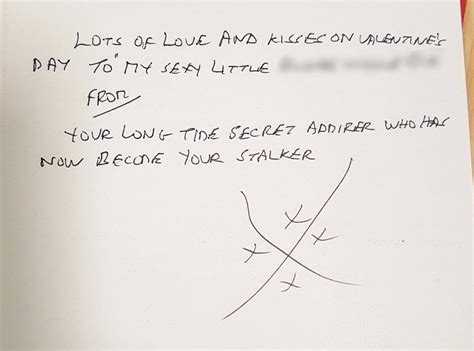 LOTS OF LOVE AND KISSES ON VALENTINE'S
DAY TO MY SEXY LITTLE
FROM
YOUR LONG TIME SECRET ADMIRER WHO HAS
NOW BECOME YOUR STALKER
X
X X
X